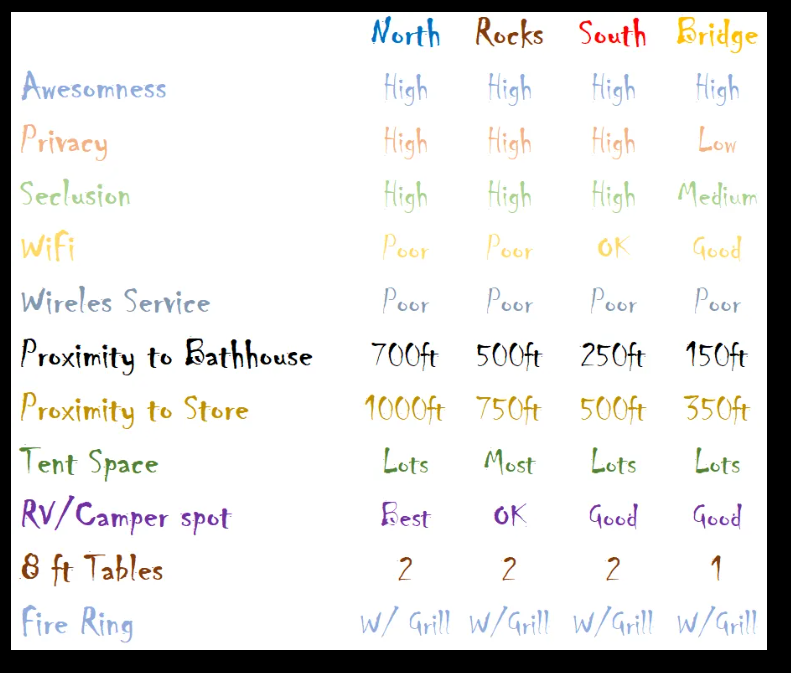 North Rocks South Bridge
Awesomness High High High High
Privacy High High High Low
Seclusion High High High Medium
WiFi Poor Poor OK Good
Wireles Service Poor Poor Poor Poor
Proximity to Bathhouse 700ft 500ft 250ft 150ft
Proximity to Store 1000ft 750ft 500ft 350ft
Tent Space Lots Most Lots Lots
RV/Camper spot Best OK Good Good
8 ft Tables 2 2 2 1
Fire Ring W/ Grill W/Grill W/Grill W/Grill